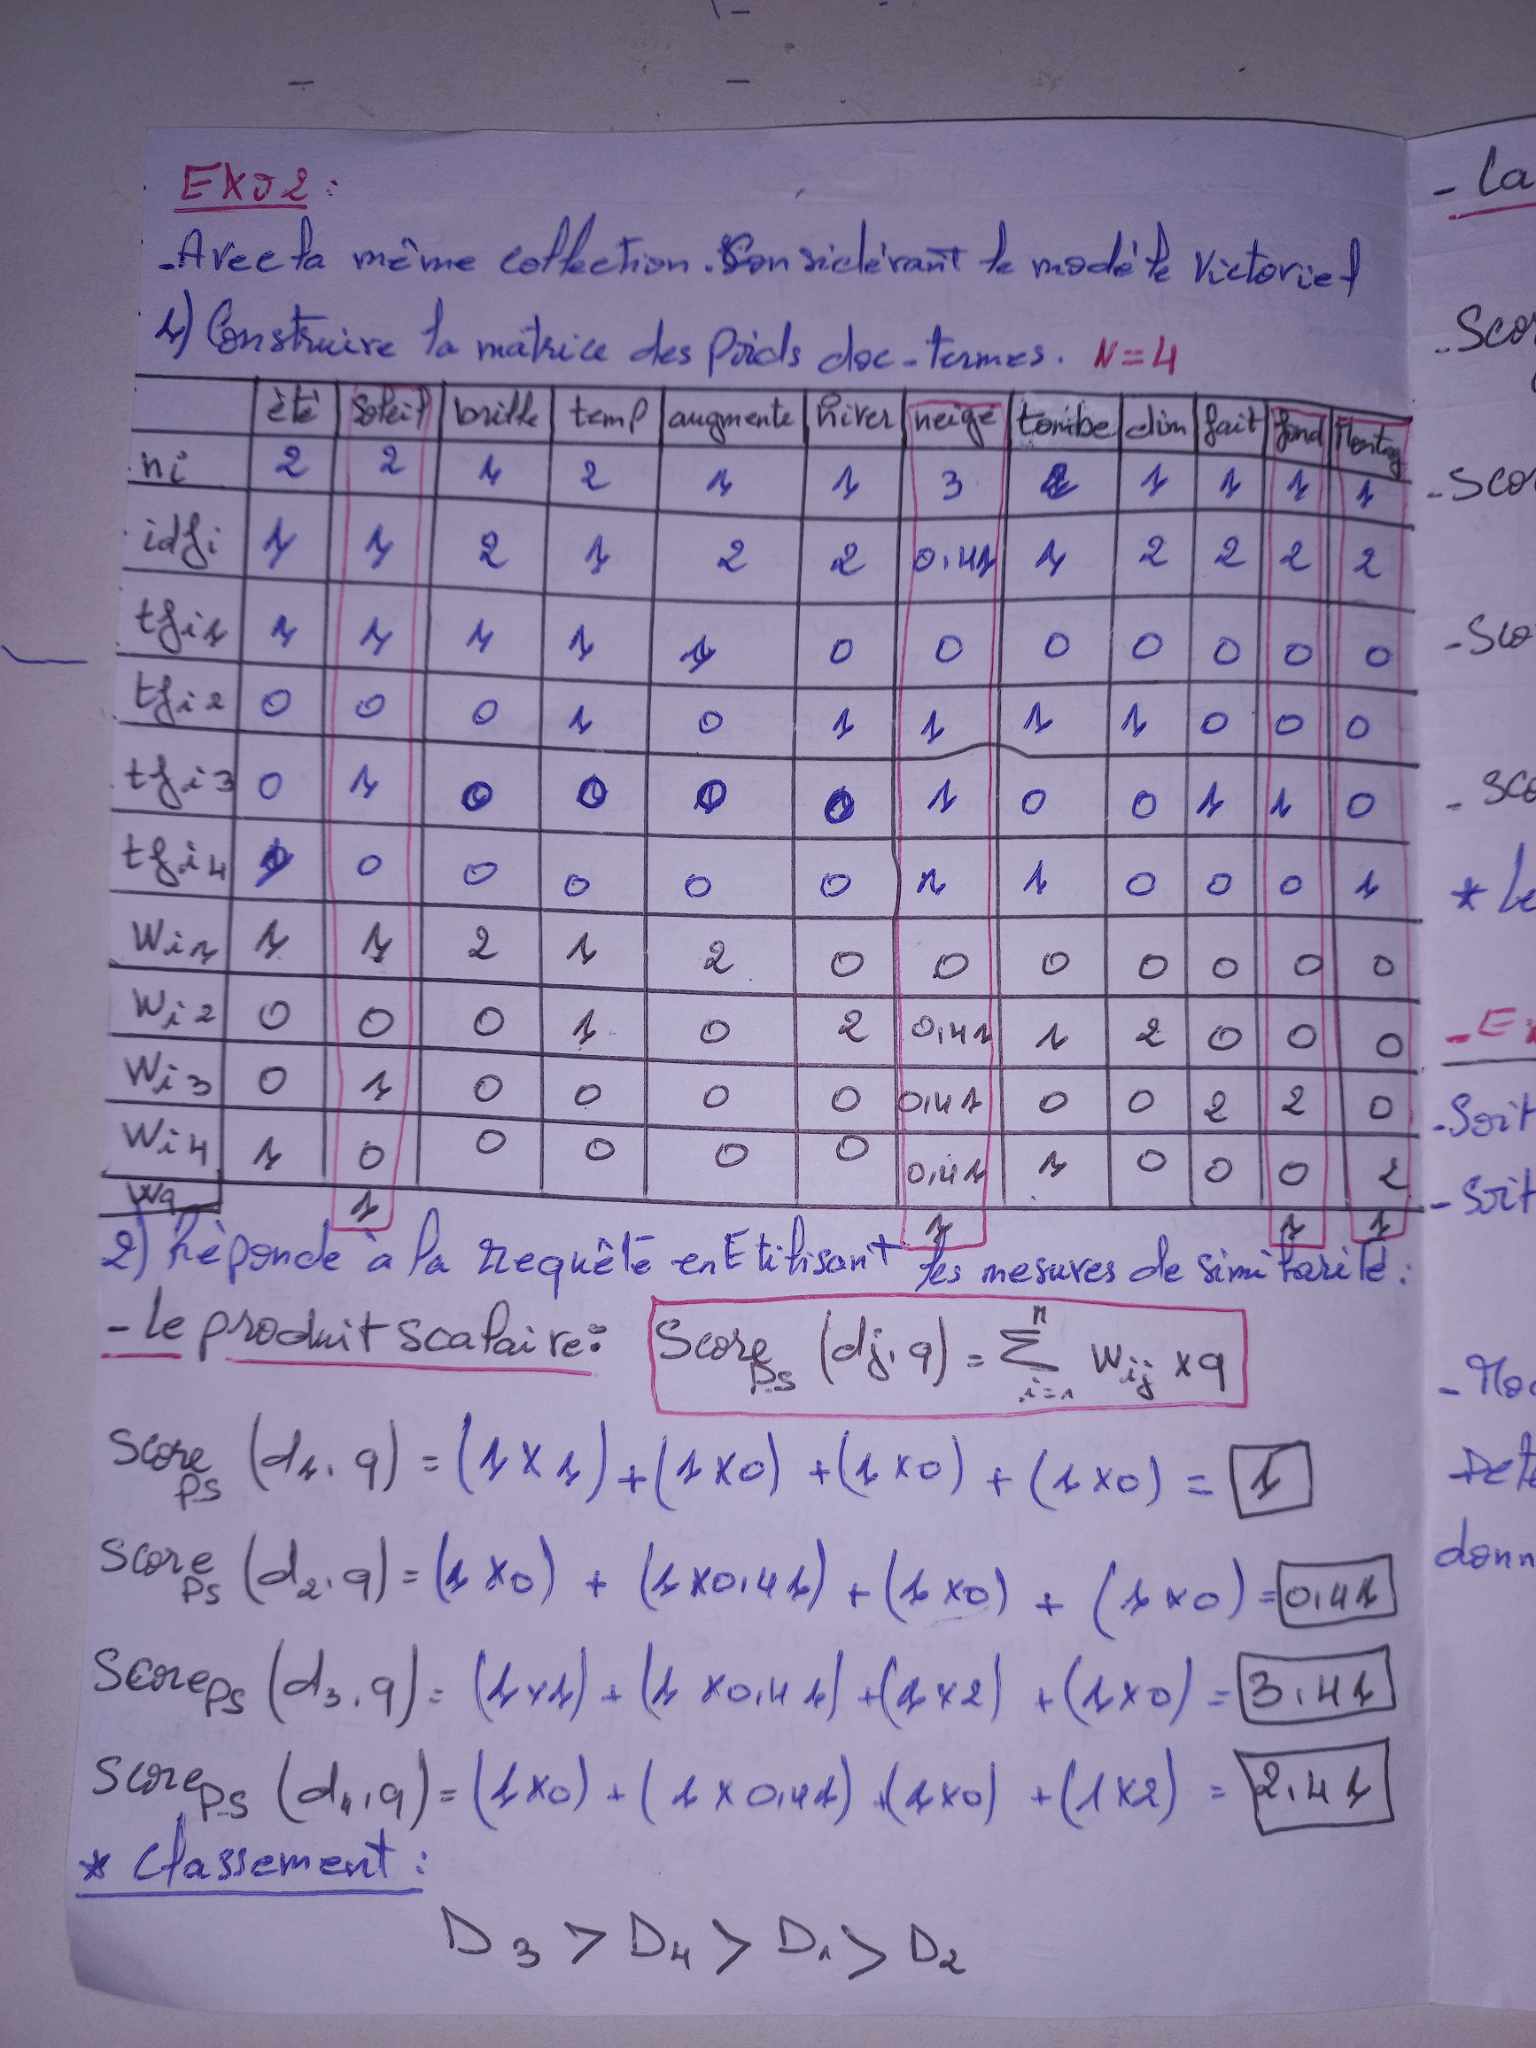 EXO2:
- Avec la même collection. Considérant le modèle Victoriel
1) Construire la matrice des poids doc-termes. N=4
été soleil brille temp augmente hiver neige tombe dim fait fond Montag
ni 2 2 1 2 1 1 3 2 1 1 1 1
idfi 1 1 2 1 2 2 0,41 1 2 2 2 2
tfi1 1 1 1 1 1 0 0 0 0 0 0 0
tfi2 0 0 0 1 0 1 1 1 1 0 0 0
tfi3 0 1 0 0 0 0 1 0 0 1 1 0
tfi4 1 0 0 0 0 0 1 1 0 0 0 1
Wi1 1 1 2 1 2 0 0 0 0 0 0 0
Wi2 0 0 0 1 0 2 0,41 1 2 0 0 0
Wi3 0 1 0 0 0 0 0,41 0 0 2 2 0
Wi4 1 0 0 0 0 0 0,41 1 0 0 0 2
Wq 1 1 1 1
2) Réponde à la requête en Etilisant les mesures de similarité:
- Le produit scalaire: Score PS (dj, q) = Σ i=1 n Wij × q
Score PS (d1, q) = (1×1) + (1×0) + (1×0) + (1×0) = 1
Score PS (d2, q) = (1×0) + (1×0,41) + (1×0) + (1×0) = 0,41
Score PS (d3, q) = (1×1) + (1×0,41) + (1×2) + (1×0) = 3,41
Score PS (d4, q) = (1×0) + (1×0,41) + (1×0) + (1×2) = 2,41
* Classement:
D3 > D4 > D1 > D2
- La
- Sco
- Sco
- Sco
- Sco
* Le
- E
- Soit
- Soit
- Mo
- Déte
donn